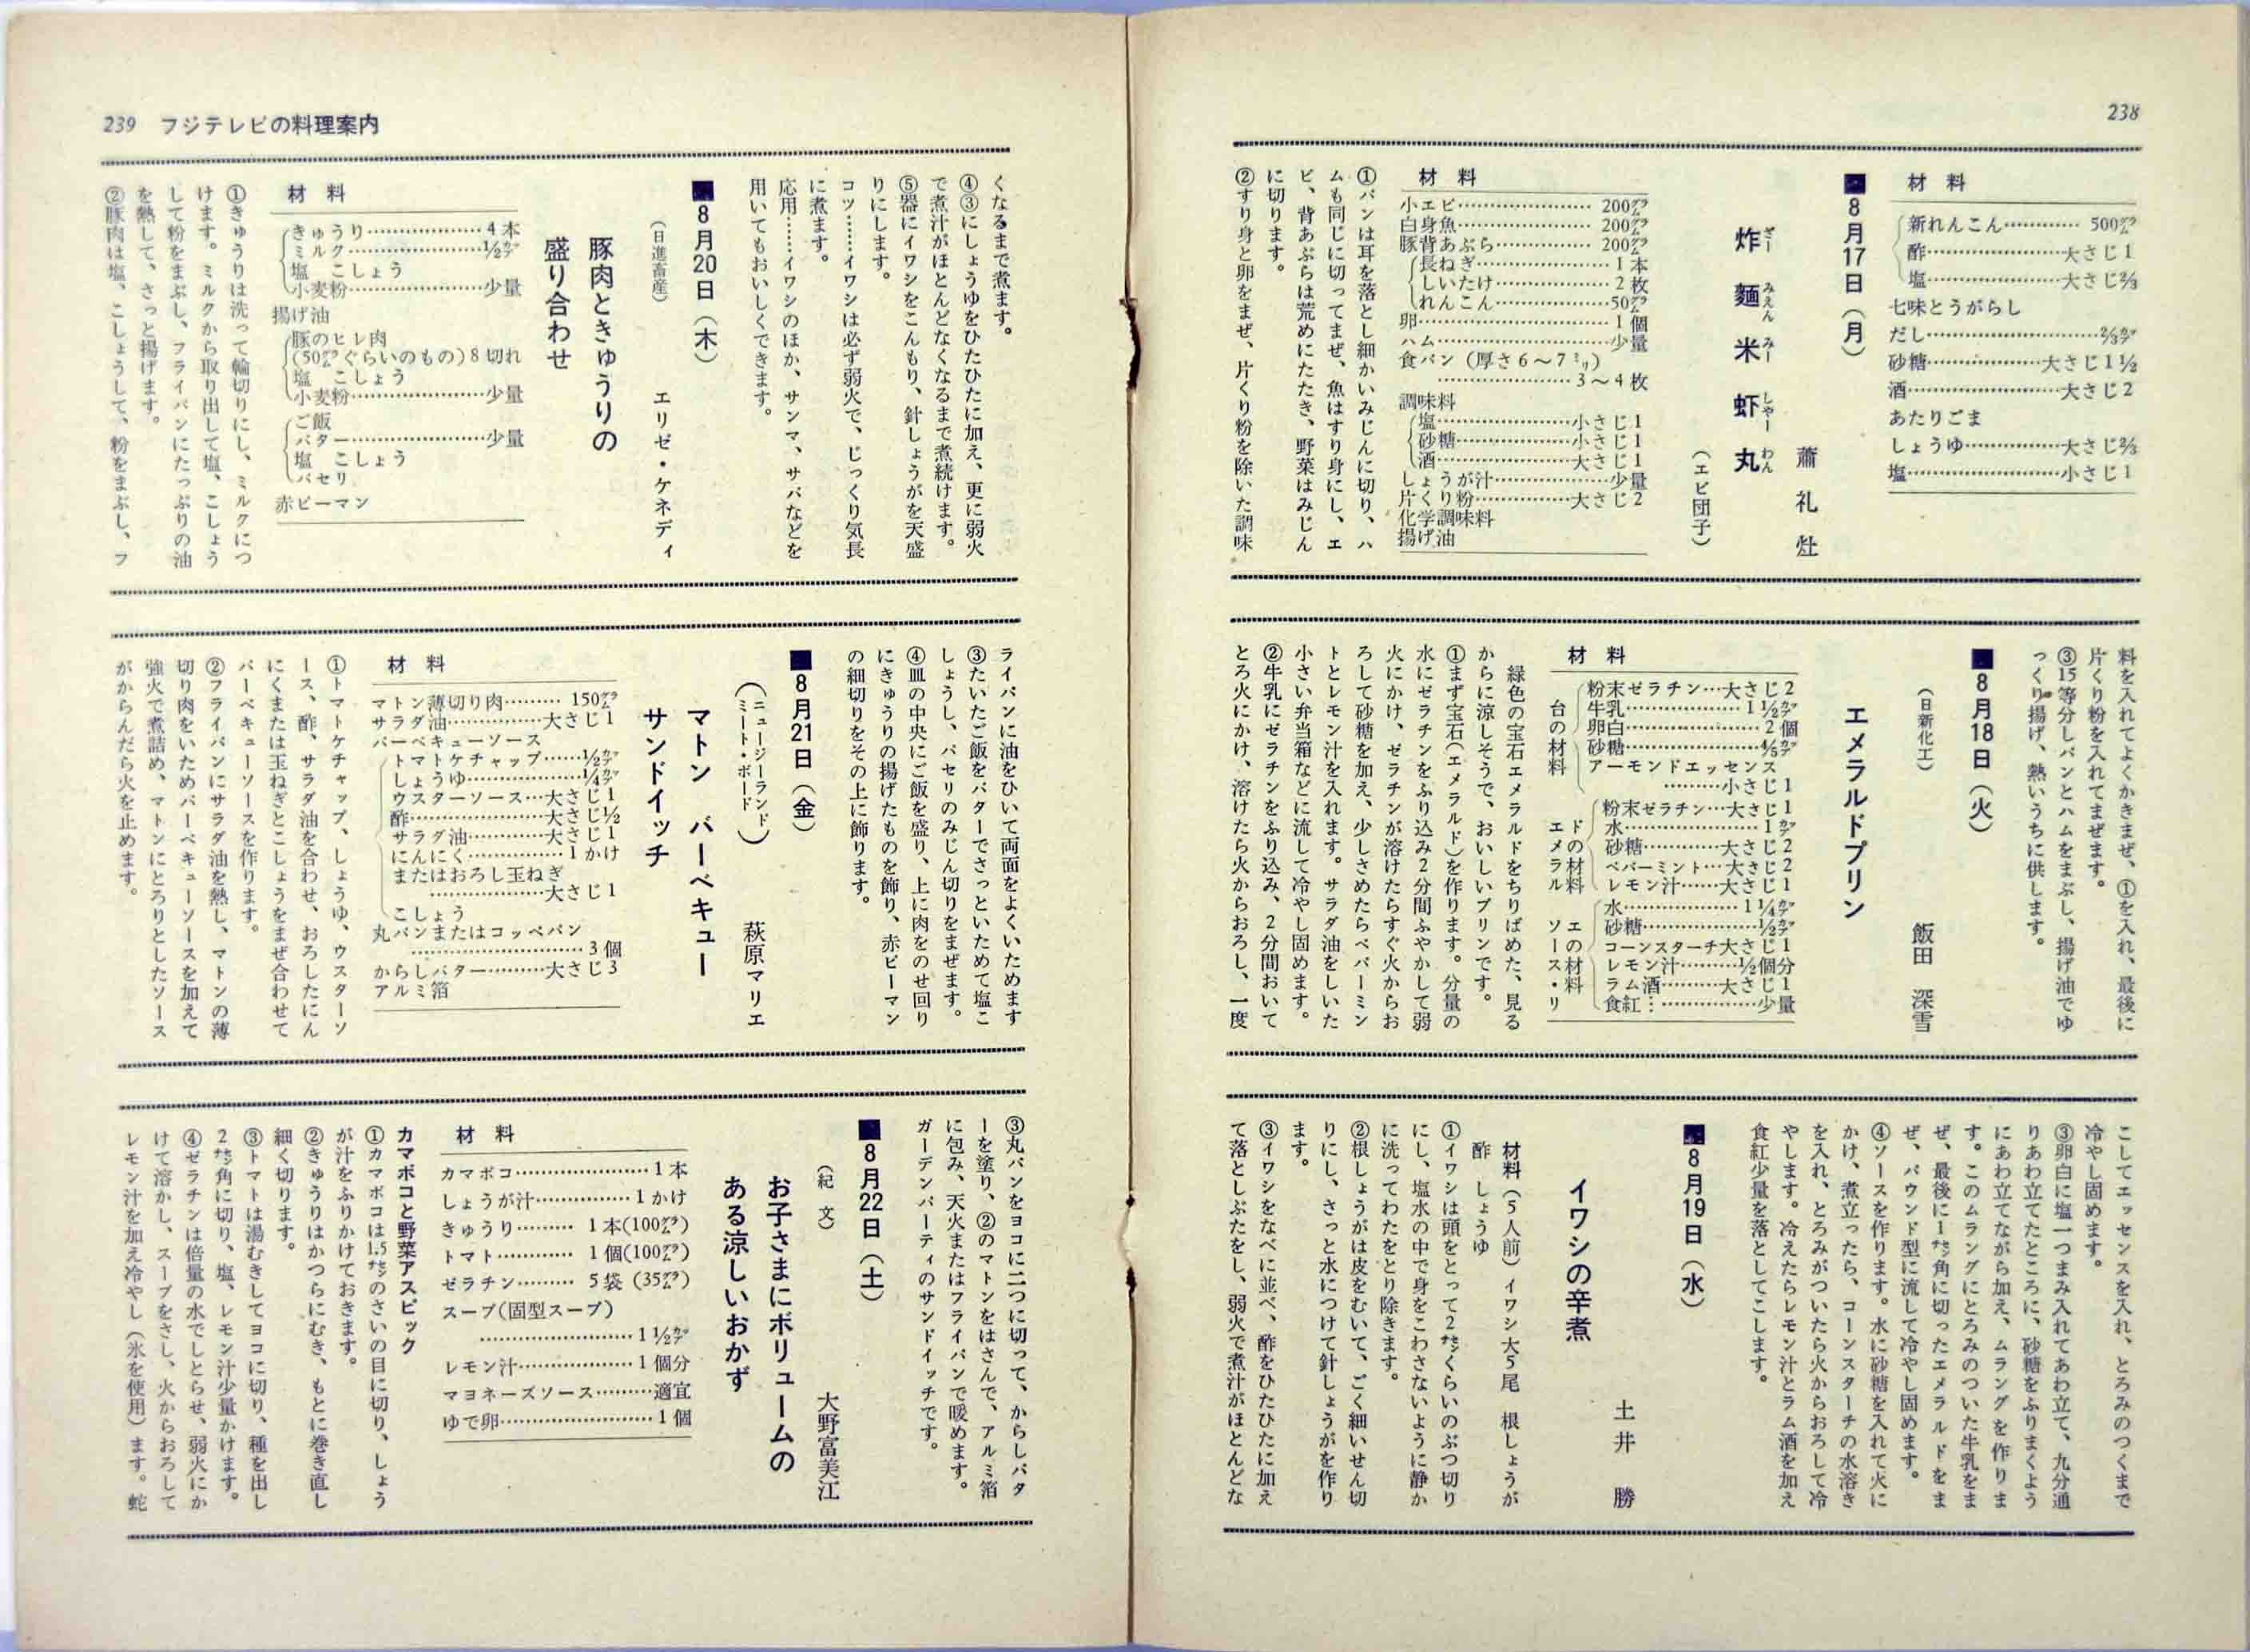 238
材料
新れんこん………… 500グラ
酢………………大さじ1
塩………………大さじ⅔
七味とうがらし
だし……………………⅔カップ
砂糖……………大さじ1½
酒…………………大さじ2
あたりごま
しょうゆ……………大さじ⅔
塩…………………小さじ1
■8月17日（月）
蕭礼灶
炸麵米虾丸
ざーみえんみーしやーわん
（エビ団子）
材料
小エビ………………… 200グラ
白身魚………………… 200グラ
豚背あぶら…………… 200グラ
長ねぎ………………… 1本
しいたけ……………… 2枚
れんこん………………50グラ
卵……………………… 1個
ハム……………………少量
食パン（厚さ6〜7ミリ）
…………………3〜4枚
調味料
塩…………………小さじ1
砂糖………………小さじ1
酒…………………大さじ1
しょうが汁……………少量
片くり粉…………大さじ2
化学調味料
揚げ油
①パンは耳を落とし細かいみじんに切り、ハ
ムも同じに切ってまぜ、魚はすり身にし、エ
ビ、背あぶらは荒めにたたき、野菜はみじん
に切ります。
②すり身と卵をまぜ、片くり粉を除いた調味
料を入れてよくかきまぜ、①を入れ、最後に
片くり粉を入れてまぜます。
③15等分しパンとハムをまぶし、揚げ油でゆ
っくり揚げ、熱いうちに供します。
■8月18日（火）
（日新化工）　飯田　深雪
エメラルドプリン
材料
台の材料
粉末ゼラチン…大さじ2
牛乳………………1½カップ
卵白………………… 2個
砂糖…………………⅘カップ
アーモンドエッセンス
………小さじ1
エメラルドの材料
粉末ゼラチン…大さじ1
水…………………1カップ
砂糖…………大さじ2
ペパーミント…大さじ2
レモン汁……大さじ1
ソース・リエの材料
水………………1¼カップ
砂糖………………½カップ
コーンスターチ大さじ1
レモン汁………½個分
ラム酒………大さじ1
食紅：……………少量
緑色の宝石エメラルドをちりばめた、見る
からに涼しそうで、おいしいプリンです。
①まず宝石（エメラルド）を作ります。分量の
水にゼラチンをふり込み2分間ふやかして弱
火にかけ、ゼラチンが溶けたらすぐ火からお
ろして砂糖を加え、少しさめたらペパーミン
トとレモン汁を入れます。サラダ油をしいた
小さい弁当箱などに流して冷やし固めます。
②牛乳にゼラチンをふり込み、2分間おいて
とろ火にかけ、溶けたら火からおろし、一度
こしてエッセンスを入れ、とろみのつくまで
冷やし固めます。
③卵白に塩一つまみ入れてあわ立て、九分通
りあわ立てたところに、砂糖をふりまくよう
にあわ立てながら加え、ムラングを作りま
す。このムラングにとろみのついた牛乳をま
ぜ、最後に1センチ角に切ったエメラルドをま
ぜ、パウンド型に流して冷やし固めます。
④ソースを作ります。水に砂糖を入れて火に
かけ、煮立ったら、コーンスターチの水溶き
を入れ、とろみがついたら火からおろして冷
やします。冷えたらレモン汁とラム酒を加え
食紅少量を落としてこします。
■8月19日（水）
土井　勝
イワシの辛煮
材料（5人前）イワシ大5尾　根しょうが
酢　しょうゆ
①イワシは頭をとって2センチくらいのぶつ切り
にし、塩水の中で身をこわさないように静か
に洗ってわたをとり除きます。
②根しょうがは皮をむいて、ごく細いせん切
りにし、さっと水につけて針しょうがを作り
ます。
③イワシをなべに並べ、酢をひたひたに加え
て落としぶたをし、弱火で煮汁がほとんどな
239　フジテレビの料理案内
くなるまで煮ます。
④③にしょうゆをひたひたに加え、更に弱火
で煮汁がほとんどなくなるまで煮続けます。
⑤器にイワシをこんもり、針しょうがを天盛
りにします。
コツ……イワシは必ず弱火で、じっくり気長
に煮ます。
応用……イワシのほか、サンマ、サバなどを
用いてもおいしくできます。
■8月20日（木）
（日進畜産）　エリゼ・ケネディ
豚肉ときゅうりの
盛り合わせ
材料
きゅうり………………4本
ミルク…………………½カップ
塩　こしょう
小麦粉…………………少量
揚げ油
豚のヒレ肉
（50グラぐらいのもの）8切れ
塩　こしょう
小麦粉…………………少量
ご飯
バター…………………少量
塩　こしょう
パセリ
赤ピーマン
①きゅうりは洗って輪切りにし、ミルクにつ
けます。ミルクから取り出して塩、こしょう
して粉をまぶし、フライパンにたっぷりの油
を熱して、さっと揚げます。
②豚肉は塩、こしょうして、粉をまぶし、フ
ライパンに油をひいて両面をよくいためます
③たいたご飯をバターでさっといためて塩こ
しょうし、パセリのみじん切りをまぜます。
④皿の中央にご飯を盛り、上に肉をのせ回り
にきゅうりの揚げたものを飾り、赤ピーマン
の細切りをその上に飾ります。
■8月21日（金）
（ニュージーランド・ミート・ボード）　萩原マリエ
マトン　バーベキュー
サンドイッチ
材料
マトン薄切り肉……… 150グラ
サラダ油……………大さじ1
バーベキューソース
トマトケチャップ……½カップ
しょうゆ………………¼カップ
ウスターソース…大さじ1
酢…………………大さじ½
サラダ油…………大さじ1
にんにく……………1かけ
またはおろし玉ねぎ
…………………大さじ1
こしょう
丸パンまたはコッペパン
………………………3個
からしバター………大さじ3
アルミ箔
①トマトケチャップ、しょうゆ、ウスターソ
ース、酢、サラダ油を合わせ、おろしたにん
にくまたは玉ねぎとこしょうをまぜ合わせて
バーベキューソースを作ります。
②フライパンにサラダ油を熱し、マトンの薄
切り肉をいためバーベキューソースを加えて
強火で煮詰め、マトンにとろりとしたソース
がからんだら火を止めます。
③丸パンをヨコに二つに切って、からしバタ
ーを塗り、②のマトンをはさんで、アルミ箔
に包み、天火またはフライパンで暖めます。
ガーデンパーティのサンドイッチです。
■8月22日（土）
（紀　文）　大野富美江
お子さまにボリュームの
ある涼しいおかず
材料
カマボコ…………………1本
しょうが汁……………1かけ
きゅうり……… 1本(100グラ)
トマト………… 1個(100グラ)
ゼラチン……… 5袋 (35グラ)
スープ(固型スープ)
……………………1½カップ
レモン汁………………1個分
マヨネーズソース………適宜
ゆで卵……………………1個
カマボコと野菜アスピック
①カマボコは1.5センチのさいの目に切り、しょう
が汁をふりかけておきます。
②きゅうりはかつらにむき、もとに巻き直し
細く切ります。
③トマトは湯むきしてヨコに切り、種を出し
2センチ角に切り、塩、レモン汁少量かけます。
④ゼラチンは倍量の水でしとらせ、弱火にか
けて溶かし、スープをさし、火からおろして
レモン汁を加え冷やし（氷を使用）ます。蛇